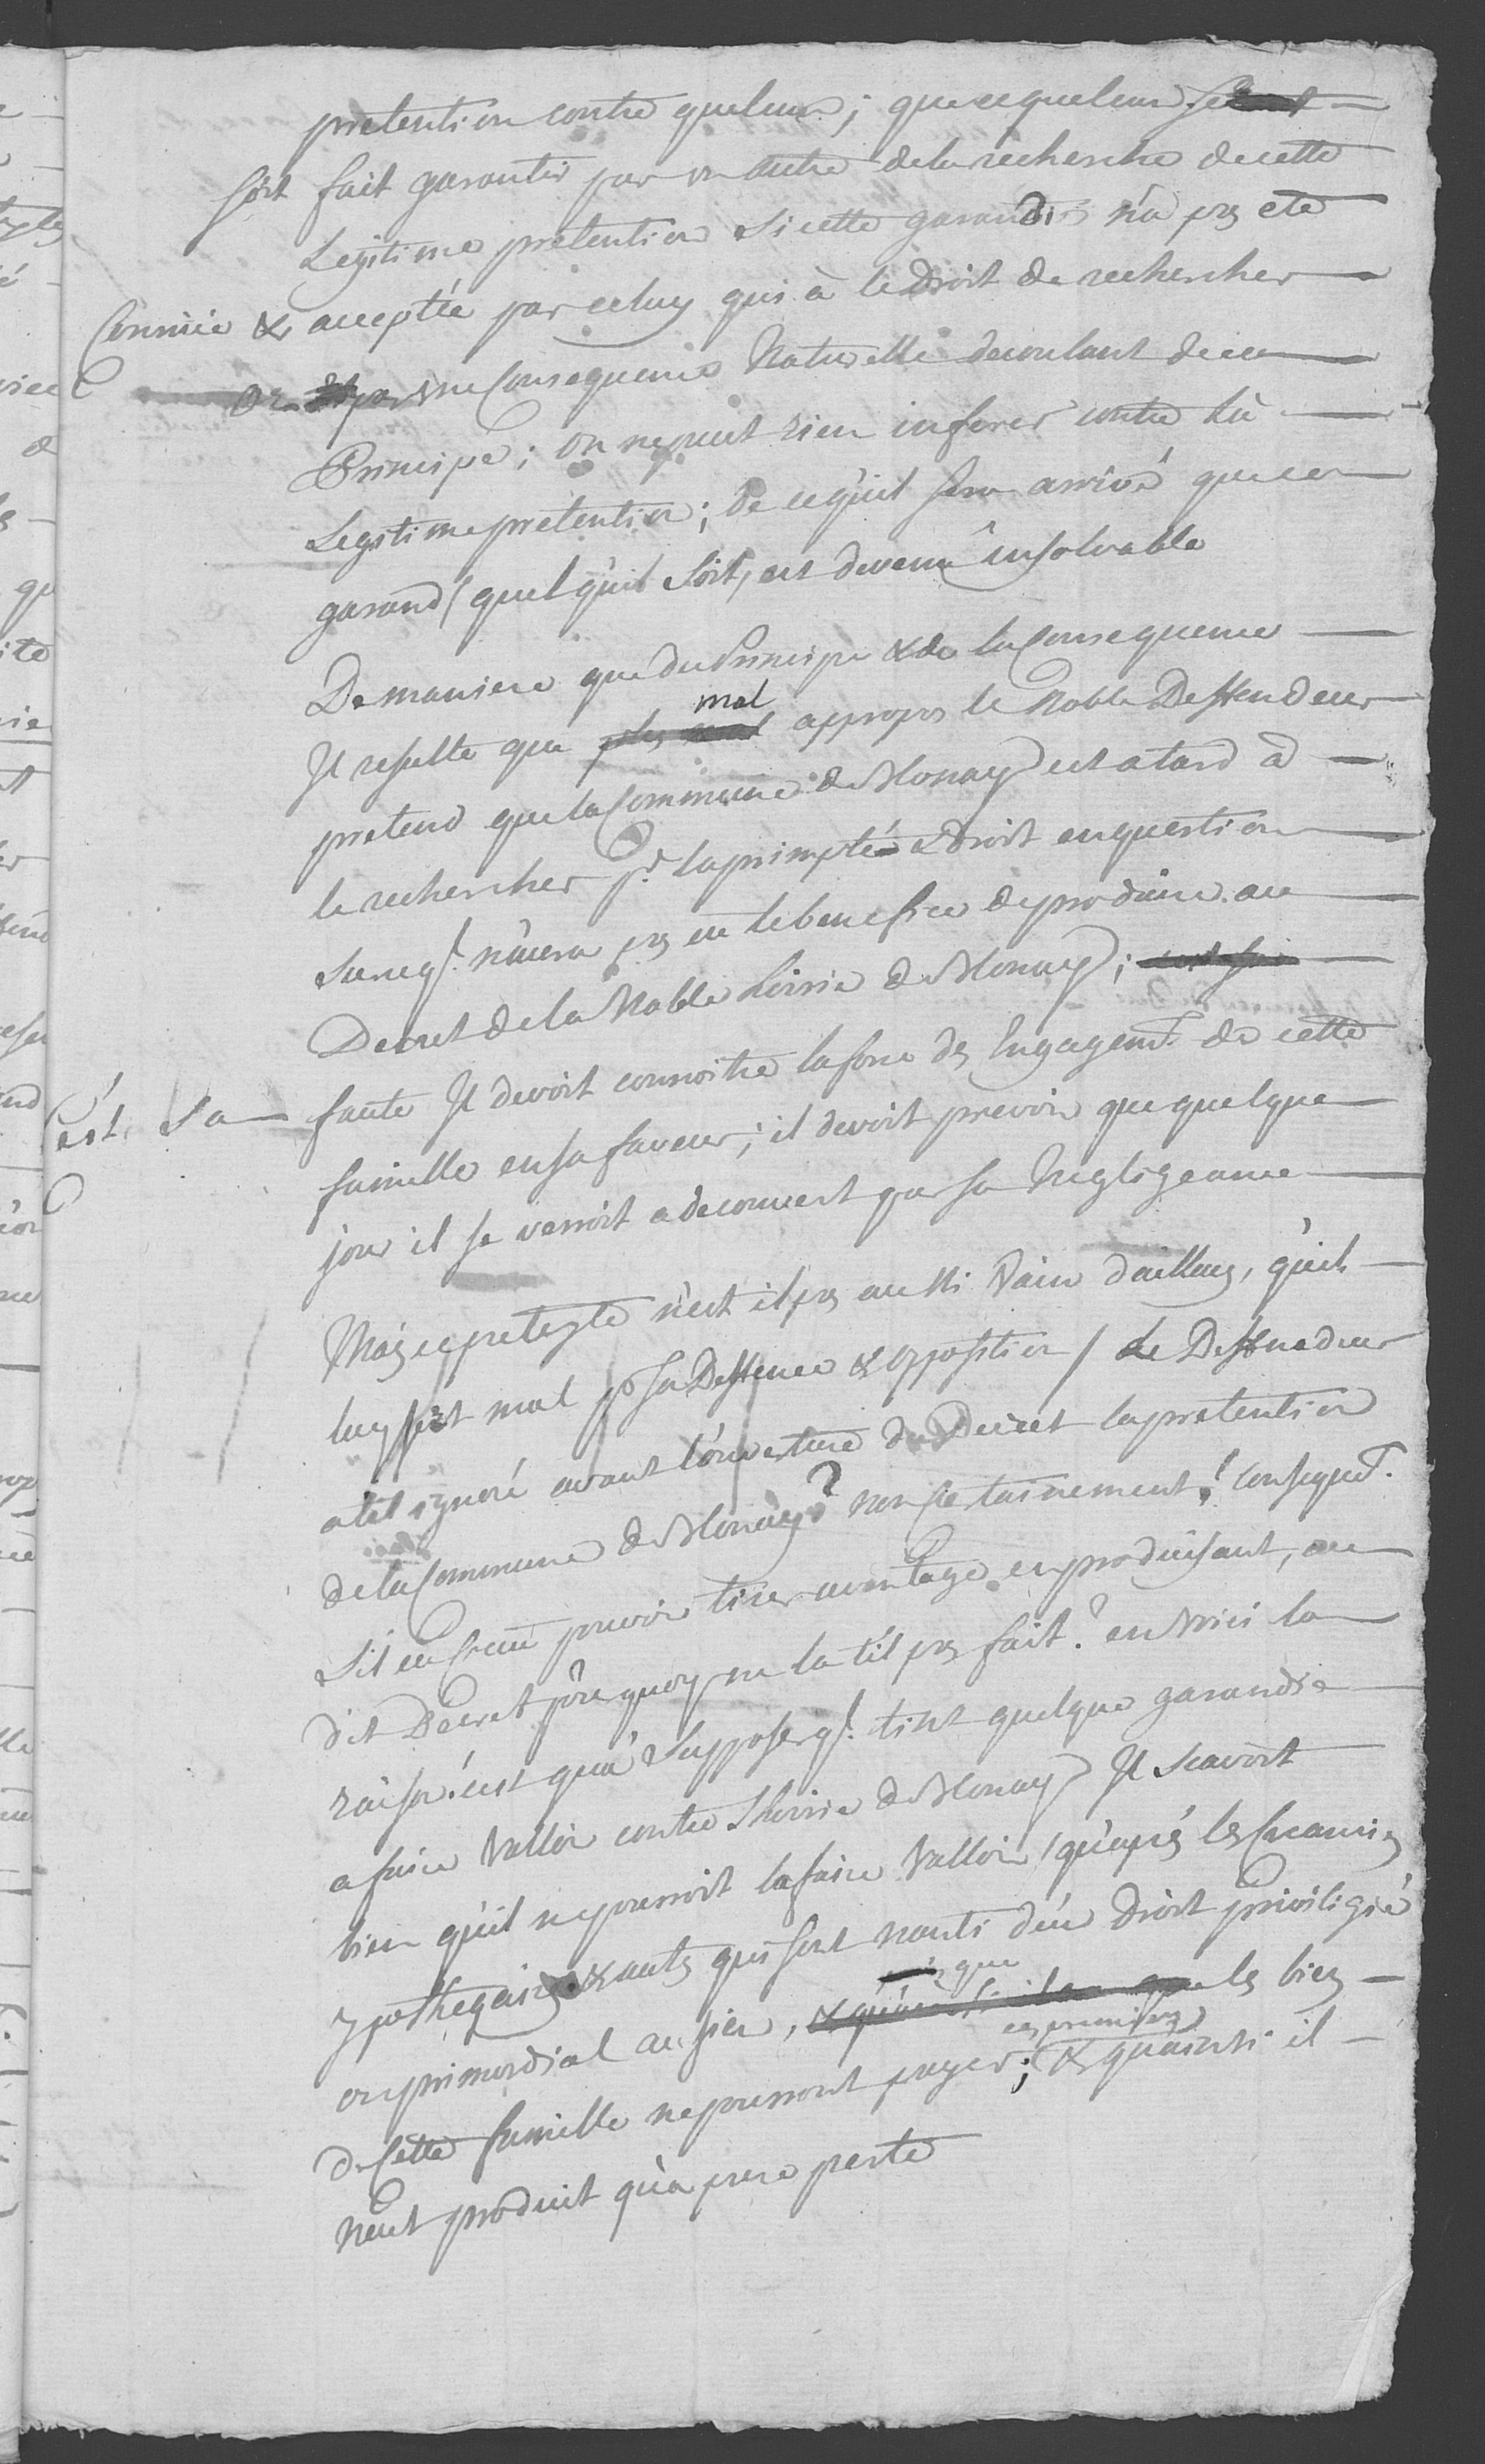 pretention contre quelcun ; que ce quelcun se
soit fait garantir par un autre de la recherche de cette
Legitime pretention si cette garandie n'a pas eté
Connüe & acceptée par celuy qui à le Droit de rechercher
Or par une Consequence Naturelle decoulant de ce
Principe ; on ne peut rien inferer contre la
Legitime pretention ; de ce qu'il sera arrivé que ce
garand / quel qu'il soit, est devenu insolvable
De maniere que du Principe & de la Consequence
Il resulte que mal appropos le Noble Deffendeur
pretend que la Commune de Blonay est a tard à
le rechercher pr. la primpté Droit en question
sur ce q. n'aura pas eu le benefice de produire au
Decret de la Noble Hoirie de Blonay ;
c'est sa faute Il devoit connoitre la force des Engagemt. de cette
famille en sa faveur ; il devoit prevoir que quelque
jour il se verroit a decouvert par sa Negligeance
Mais ce pretexte n'est il pas aussi Vain d'ailleurs, qu'il
luy sied mal pr sa Deffence & opposition / Le Deffendeur
a til ignoré avant l'ouverture du Decret la pretention
de la Commune de Blonay ? non Certainnement ! Consequt.
S'il eu Creu pouvoir tirer avantage en produisant, au
dit Decret pourquoy ne la t'il pas fait ? en voici la
raison : c'est qu'à Supposer q. tint quelque garandie
a faire Valloir contre l'hoirie de Blonay Il Scavoit
bien qu'il ne pourroit la faire Valloir / qu'après les Creancies
ypothequaires & autes qui sont nanti d'un Droit priviligié
ou primordial au sien, que les biens
de Cette famille ne pourront payer ces premiers ; & qu'ainsi il
n'eut produit qu'a pure perte